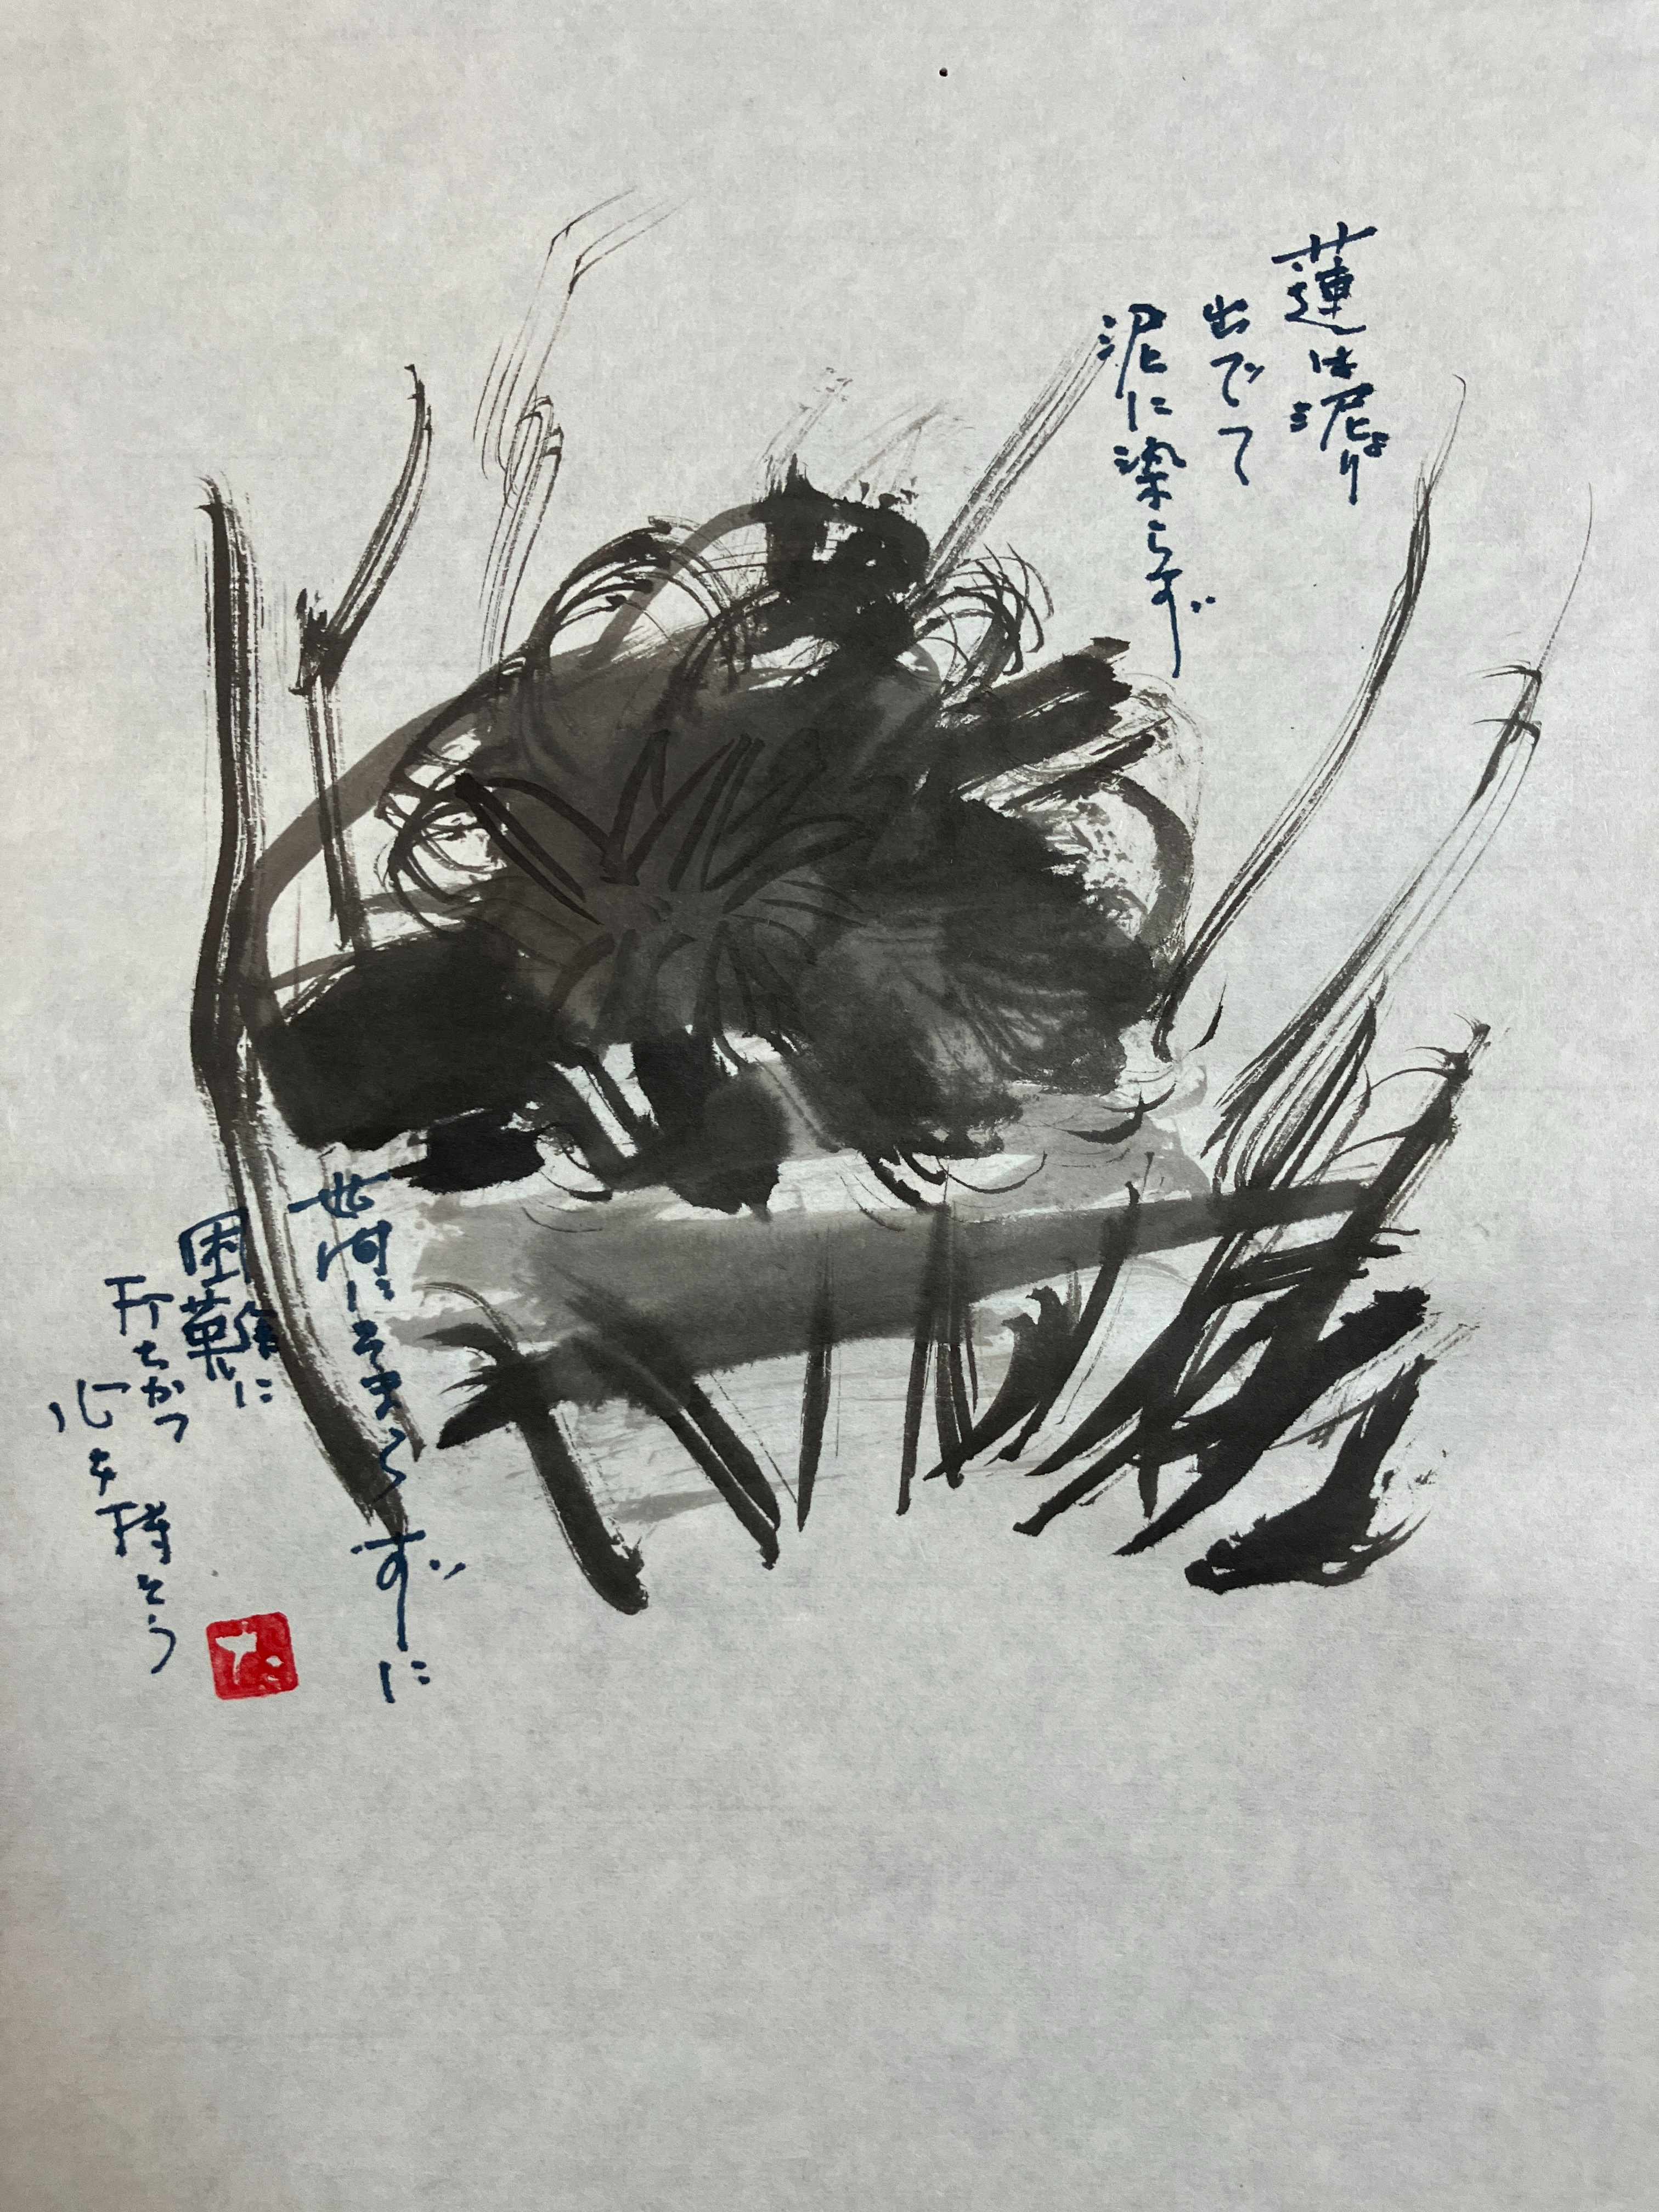 蓮は泥より
出でて
泥に染らず
世間にそまらずに
困難に
打ちかつ
心を持とう